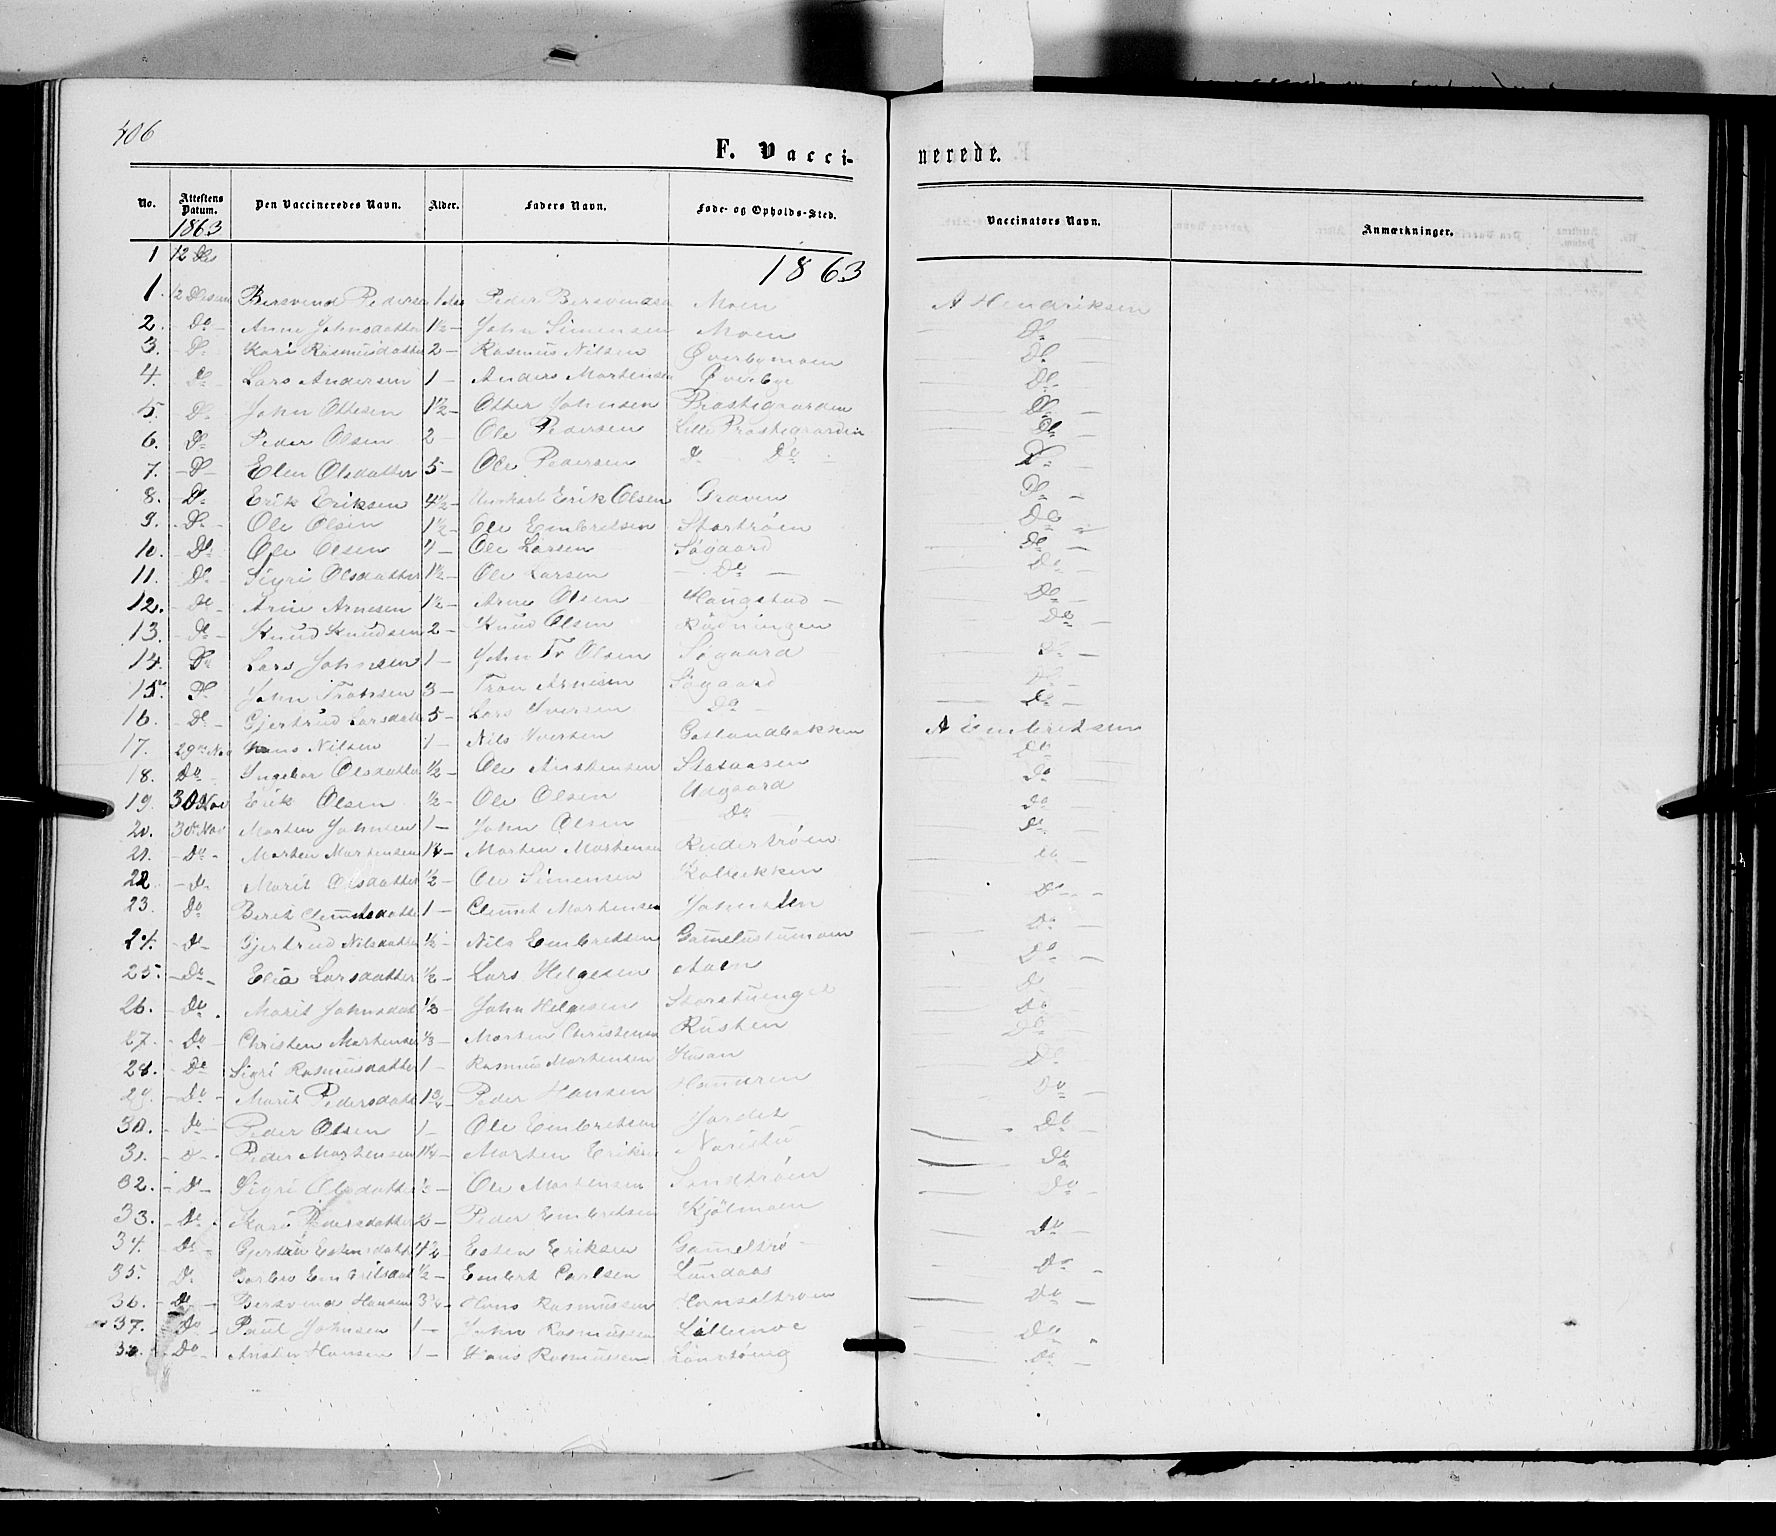 406
F. Vacci-
nerede.
No. Attestens Datum. Den Vaccineredes Navn. Alder. Faders Navn. Føde- og Opholds-Sted. Vaccinators Navn. Anmærkninger.
1863
1 12 Des
1863
1. 12 Bersvend Pedersen 1 Peder Bersvendsen Moen A Hendriksen
2. Do Anne Johnsdatter 1½ John Simensen Moen Do
3. Do Kari Rasmusdatter 2 Rasmus Nilsen Øverbymoen Do
4. Do Lars Andersen 1 Anders Mortensen Øverbye Do
5. Do John Ottesen 1½ Otter Johnsen Præstegaarden Do
6. Do Peder Olsen 2 Ole Pedersen Lille Præstegaarden Do
7. Do Elen Olsdatter 5 Ole Pedersen Do Do
8. Do Erik Eriksen 4½ Ungkarl Erik Olsen Graven Do
9. Do Ole Olsen 1½ Ole Embretsen Stortrøen Do
10. Do Ole Olsen Ole Larsen Søgaard Do
11. Do Sigri Olsdatter 1½ Ole Larsen Do Do
12. Do Arne Arnesen 1½ Arne Olsen Haugstad Do
13. Do Knud Knudsen 2 Knud Olsen Rødningen Do
14. Do Lars Johnsen 1 John Tr Olsen Søgaard Do
15. Do John Tronsen 3 Tron Arnesen Søgaard Do
16. Do Gjertrud Larsdatt 5 Lars Iversen Do Do
17. 29 Nov Hans Nilsen 1 Nils Iversen Gaslandbakken A Embretsen
18. Do Ingebor Olsdatter ½ Ole Austensen Do
19. 30 Nov Erik Olsen ½ Ole Olsen Udgaard Do
20. 30 Nov Morten Johnsen 1 John Olsen Do Do
21. Do Morten Mortensen Morten Mortensen Do
22. Do Marit Olsdatter ½ Ole Simensen Kolbekken Do
23. Do Berit Clemetsdatter 1 Clemet Mortensen Do
24. Do Gjertrud Nilsdatter ½ Nils Embretsen Do
25. Do Larsdatter ½ Lars Helgesen Moen Do
26. Do Marit Johnsdat ⅓ John Helgesen Storstuenget Do
27. Do Christen Mortensen ⅓ Morten Christensen Rusten Do
28. Do Sigri Rasmusdatter 1 Rasmus Mortensen Do
29. Do Marit Pedersdatt 1¾ Peder Hansen Do
30. Do Peder Olsen 1 Ole Embretsen Jordet Do
31. Do Peder Mortensen Morten Erik Do
32. Do Sigri Olsdatter Ole Mortensen Sandtrøen Do
33. Do Kari Pedersdatter 2 Peder Embretsen Kjølmoen Do
34. Do Estensdatt 4½ Esten Eriksen Gameltrø Do
35. Do Embritsdat ½ Embret Carlsen Lundaas Do
36. Do Bersvend Hansen Hans Rasmussen Do
37. Do Paul Johnsen 1 John Rasmussen Lillemoe Do
38. Do Hansen 1 Hans Rasmussen Do